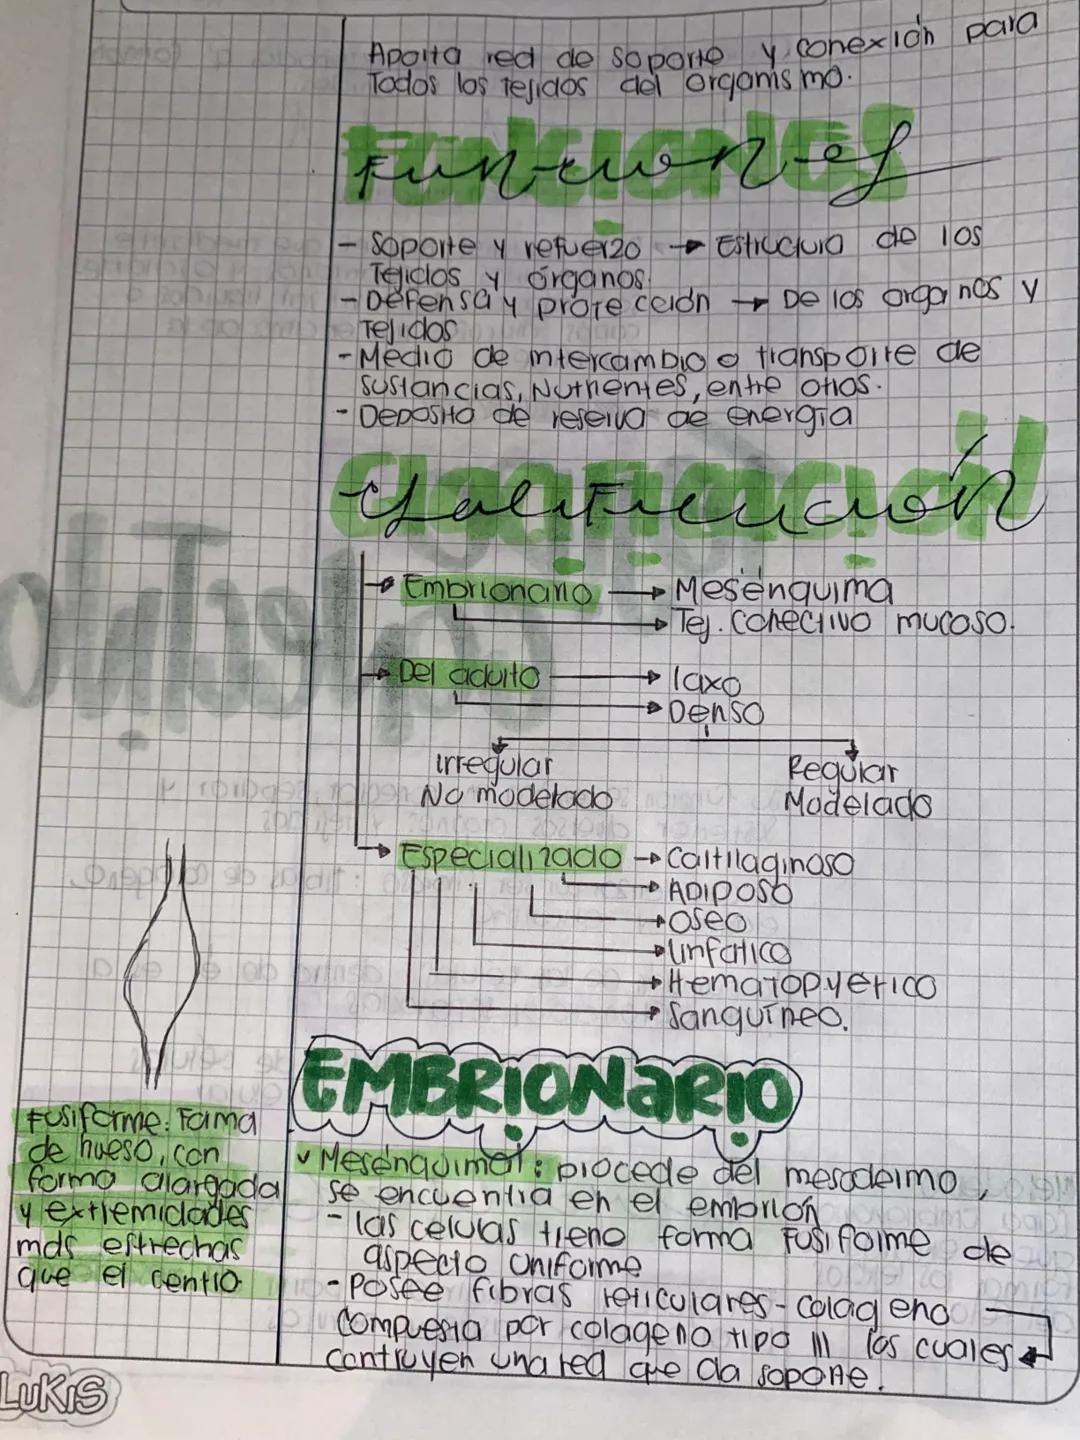 Aporta red de soporte y conexión para
Todos los Tejidos del organismo.
FUNCIONES
Funciones
- Soporte y refuerzo → Estructura de los
Tejidos y órganos.
- Defensa y protección → De los organos y
Tejidos
- Medio de intercambio o transporte de
sustancias, Nutrientes, entre otros.
- Deposito de reserva de energía
Clasificación
- Embrionario → Mesénquima
→ Tej. conectivo mucoso.
→ Del adulto → laxo
→ Denso
Irregular Regular
No modelado Modelado
→ Especializado → Cartilaginoso
→ ADIPOSO
→ Oseo
→ Linfatico
→ Hematopoyetico
→ Sanguíneo.
EMBRIONARIO
Fusiforme: Forma
de hueso, con
forma alargada
y extremidades
más estrechas
que el centro
✓ Mesenquimal: procede del mesodermo,
se encuentra en el embrión
- las celulas tiene forma fusiforme de
aspecto uniforme
- Posee fibras reticulares - colageno
compuesta por colageno tipo III los cuales
contruyen una red que da soporte.
LUKIS